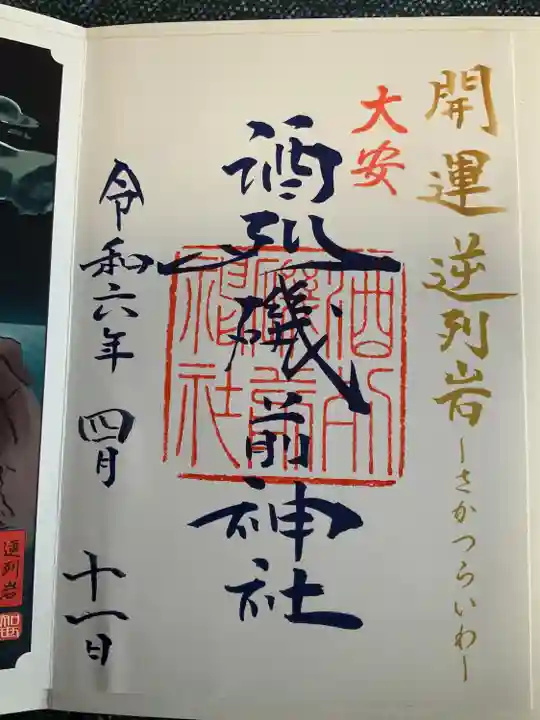 開運逆列岩ーさかつらいわー
大安
酒列磯前神社
令和六年 四月 十一日
逆列岩